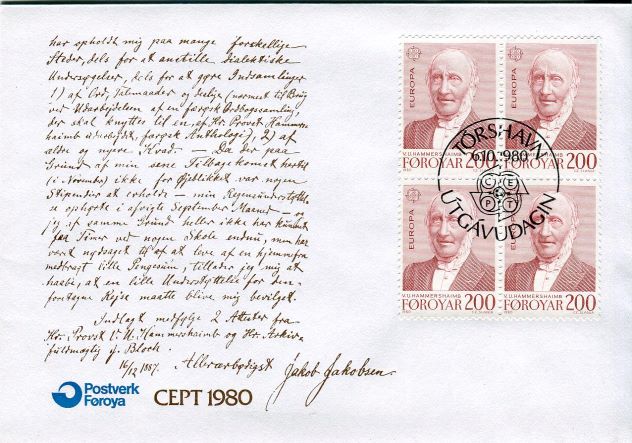 har opholdt mig paa mange forskellige
Steder, dels for at anstille dialektiske
Undersøgelser, dels for at gøre Indsamlinger
1) af Ord, Talemaader og deslige (nærmest til Brug
ved Udarbejdelsen af en færøsk Ordbogssamling,
der skal knyttes til en, af Hr. Provst Hammers-
haimb udarbejdet, færøsk Anthologi), 2) af
ældre og nyere Kvad. – Da der paa
Grund af min sene Tilbagekomst hertil
(i Novembr) ikke for Øjeblikket var nogen
Stipendier at erholde – min Regensunderstøttelse
ophørte i afvigte September Maaned – og
jeg af samme Grund heller ikke har kunnet
faa Timer ved nogen Skole endnu, men har
været nødsaget til at leve af en hjemmefra
medbragt lille Pengesum, tillader jeg mig at
haabe, at en lille Understøttelse for den
foretagne Rejse maatte blive mig bevilget.
Indlagt medfølge 2 Attester fra
Hr. Provst V. U. Hammershaimb og Hr. Arkiv-
fuldmægtig J. Bloch.
16/12 1887. Allerærbødigst Jakob Jakobsen.
Postverk
Føroya
CEPT 1980
EUROPA
V.U.HAMMERSHAIMB
FØROYAR 200
1980 CZ.SLANIA
EUROPA
FØROYAR 200
EUROPA
V.U.HAMMERSHAIMB
FØROYAR 200
1980 CZ.SLANIA
EUROPA
V.U.HAMMERSHAIMB
FØROYAR 200
1980 CZ.SLANIA
TÓRSHAVN
6.10.1980
CEPT
ÚTGÁVUDAGIN